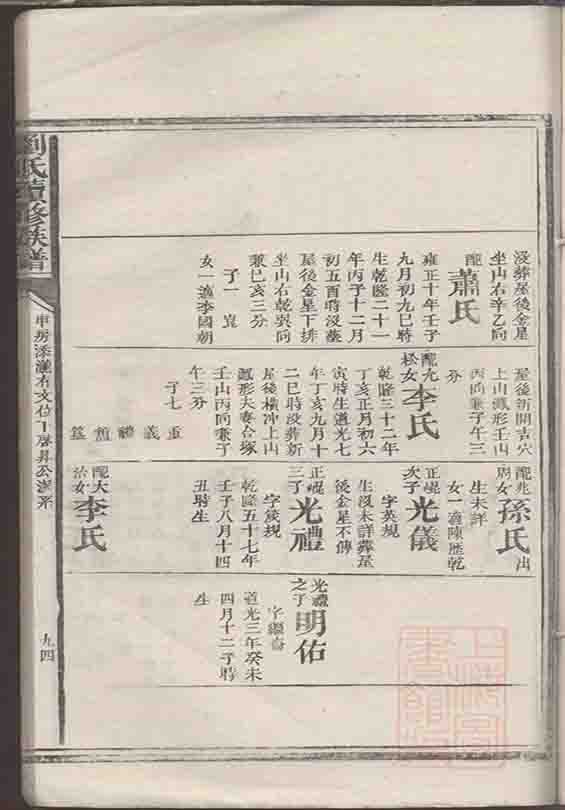 劉氏續修族譜
九四
沒葬屋後金星
坐山右辛乙向
配蕭氏
雍正十年壬子
九月初九巳時
生乾隆二十一
年丙子十二月
初五酉時沒葬
屋後金星下排
坐山右乾巽向
兼巳亥三分
子一 崑
女一適李國朝
屋後新開吉穴
上山鳳形壬山
丙向兼子午三
分
配九松女李氏
乾隆三十二年
丁亥正月初六
寅時生道光七
年丁亥九月十
二巳時沒葬新
屋後橫冲上山
鳳形夫妻合塚
壬山丙向兼子
午三分
子七 重
義
禮
配兆周女孫氏出
生未詳
女一適陳歷乾
正崐次子光儀
字英規
生沒未詳葬屋
後金星不傳
正崐三子光禮
字簇規
乾隆五十七年
壬子八月十四
丑時生
配大治女李氏
光禮之子明佑
字繼裔
道光三年癸未
四月十二子時
生
上海圖書館藏